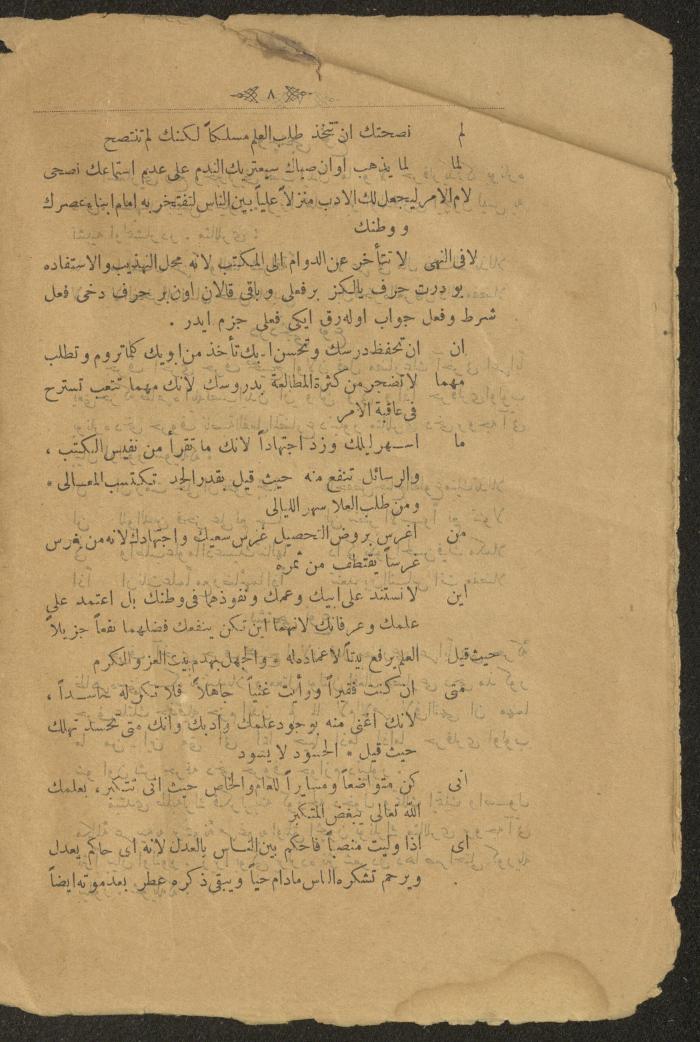 ٨
لم نصحتك ان تتخذ طلب العلم مسلكاً لكنك لم تنتصح
لما لما يذهب اوان صباك سيعتريك الندم على عديم استماعك نصحى
لام الامر ليجعل لك الادب منزلاً علياً بين الناس لتفتخر به امام ابناء عصرك
ووطنك
لا فى النهى لا تتأخر عن الدوام الى المكتب لانه محل التهذيب والاستفاده
بو درت حرف يالكز بر فعلى وباقى قالان اون بر حرف دخى فعل
شرط وفعل جواب اوله رق ايكى فعلى جزم ايدر .
ان ان تحفظ درسك وتحسن ادبك تأخذ من ابويك كلما تروم وتطلب
مهما لا تضجر من كثرة المطالعة بدروسك لانك مهما تتعب تسترح
فى عاقبة الامر
ما اسهر ليلك وزد اجتهاداً لانك ما تقرأ من نفيس الكتب ،
والرسائل تنتفع منه حيث قيل بقدر الجد تكتسب المعالى *
ومن طلب العلا سهر الليالى
من اغرس بروض التحصيل غرس سعيك واجتهادك لانه من يغرس
غرساً يقتطف من ثمره
اين لا تستند على ابيك وعمك ونفوذهما فى وطنك بل اعتمد على
علمك وعرفانك لانهما اين تكن ينفعك فضلهما نفعاً جزيلاً
حيث قيل العلم يرفع بيتاً لا عماد له * والجهل يهدم بيت العز والكرم
متى ان كنت فقيراً ورأيت غنياً جاهلاً فلا تكن له حاسداً ،
لانك اغنى منه بوجود علمك وادبك وانك متى تحسد تهلك
حيث قيل * الحسود لا يسود
انى كن متواضعاً ومسايراً للعام والخاص حيث انى تتكبر ، بعلمك
الله تعالى يبغض المتكبر
اى اذا وليت منصباً فاحكم بين النـاس بالعدل لانه اى حاكم يعدل
ويرحم تشكره الناس مادام حياً ويبقى ذكره عطر بعد موته ايضاً